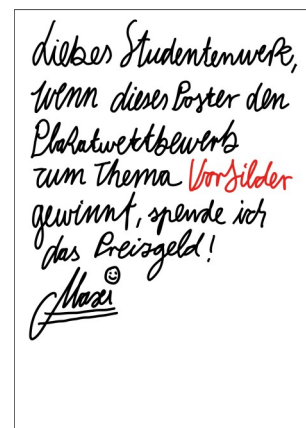 Liebes Studentenwerk,
wenn dieses Poster den
Plakatwettbewerb
zum Thema Vorbilder
gewinnt, spende ich
das Preisgeld!
Maxi